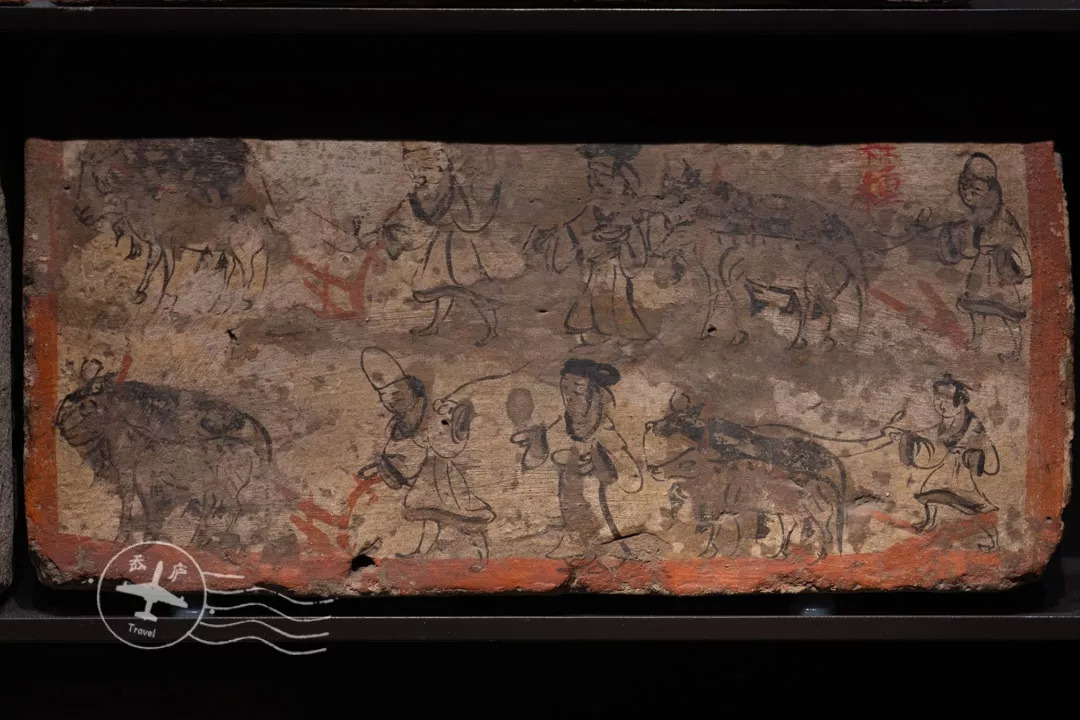 耕種
庐
Travel